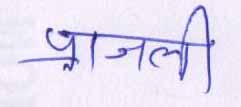 प्राजली